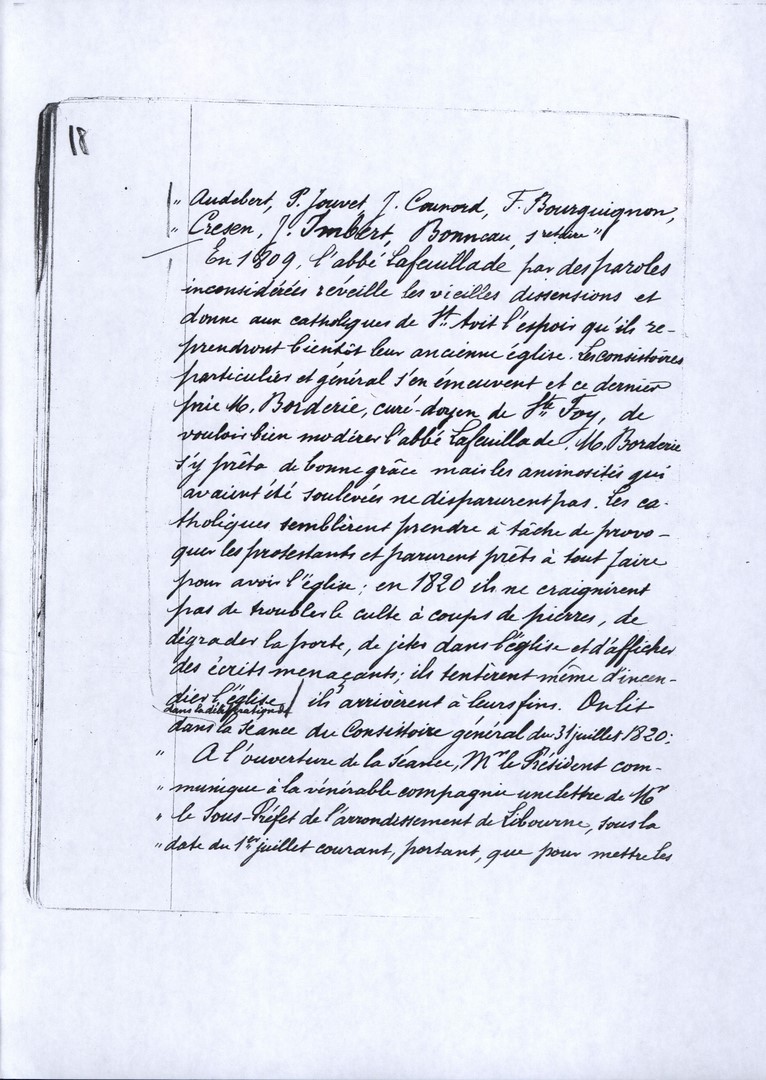 18
" Audebert, P. Jouvet, J. Counord, F. Bourguignon,
" Cresen, J. Imbert, Bonneau, s retaire"
En 1809, l'abbé Lafeuillade par des paroles
inconsidérées réveille les vieilles dissensions et
donne aux catholiques de St. Avit l'espoir qu'ils re-
prendront bientôt leur ancienne église. Les consistoires
particuliers et général s'en émeuvent et ce dernier
prie M. Borderie, curé-doyen de Ste Foy, de
vouloir bien modérer l'abbé Lafeuillade. M. Borderie
s'y prêta de bonne grâce mais les animosités qui
avaient été soulevées ne disparurent pas. Les ca-
tholiques semblèrent prendre à tâche de provo-
quer les protestants et parurent prêts à tout faire
pour avoir l'église; en 1820 ils ne craignirent
pas de troubler le culte à coups de pierres, de
dégrader la porte, de jeter dans l'église et d'afficher
des écrits menaçants; ils tentèrent même d'incen-
dier l'église / ils arrivèrent à leurs fins. On lit
dans la délibération de
dans la séance du Consistoire général du 31 juillet 1820:
" A l'ouverture de la séance, Mr le Président com-
" munique à la vénérable compagnie une lettre de Mr
" le Sous-Préfet de l'arrondissement de Libourne, sous la
" date du 1er juillet courant, portant, que pour mettre les